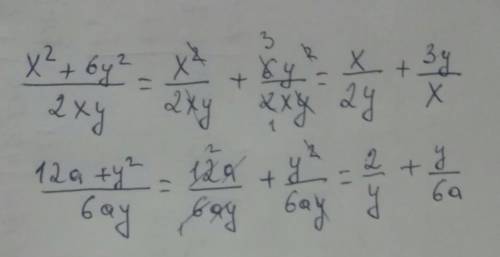 (x² + 6y²)/(2xy) = x²/(2xy) + 6y²/(2xy) = x/(2y) + 3y/x
(12a + y²)/(6ay) = 12a/(6ay) + y²/(6ay) = 2/y + y/(6a)